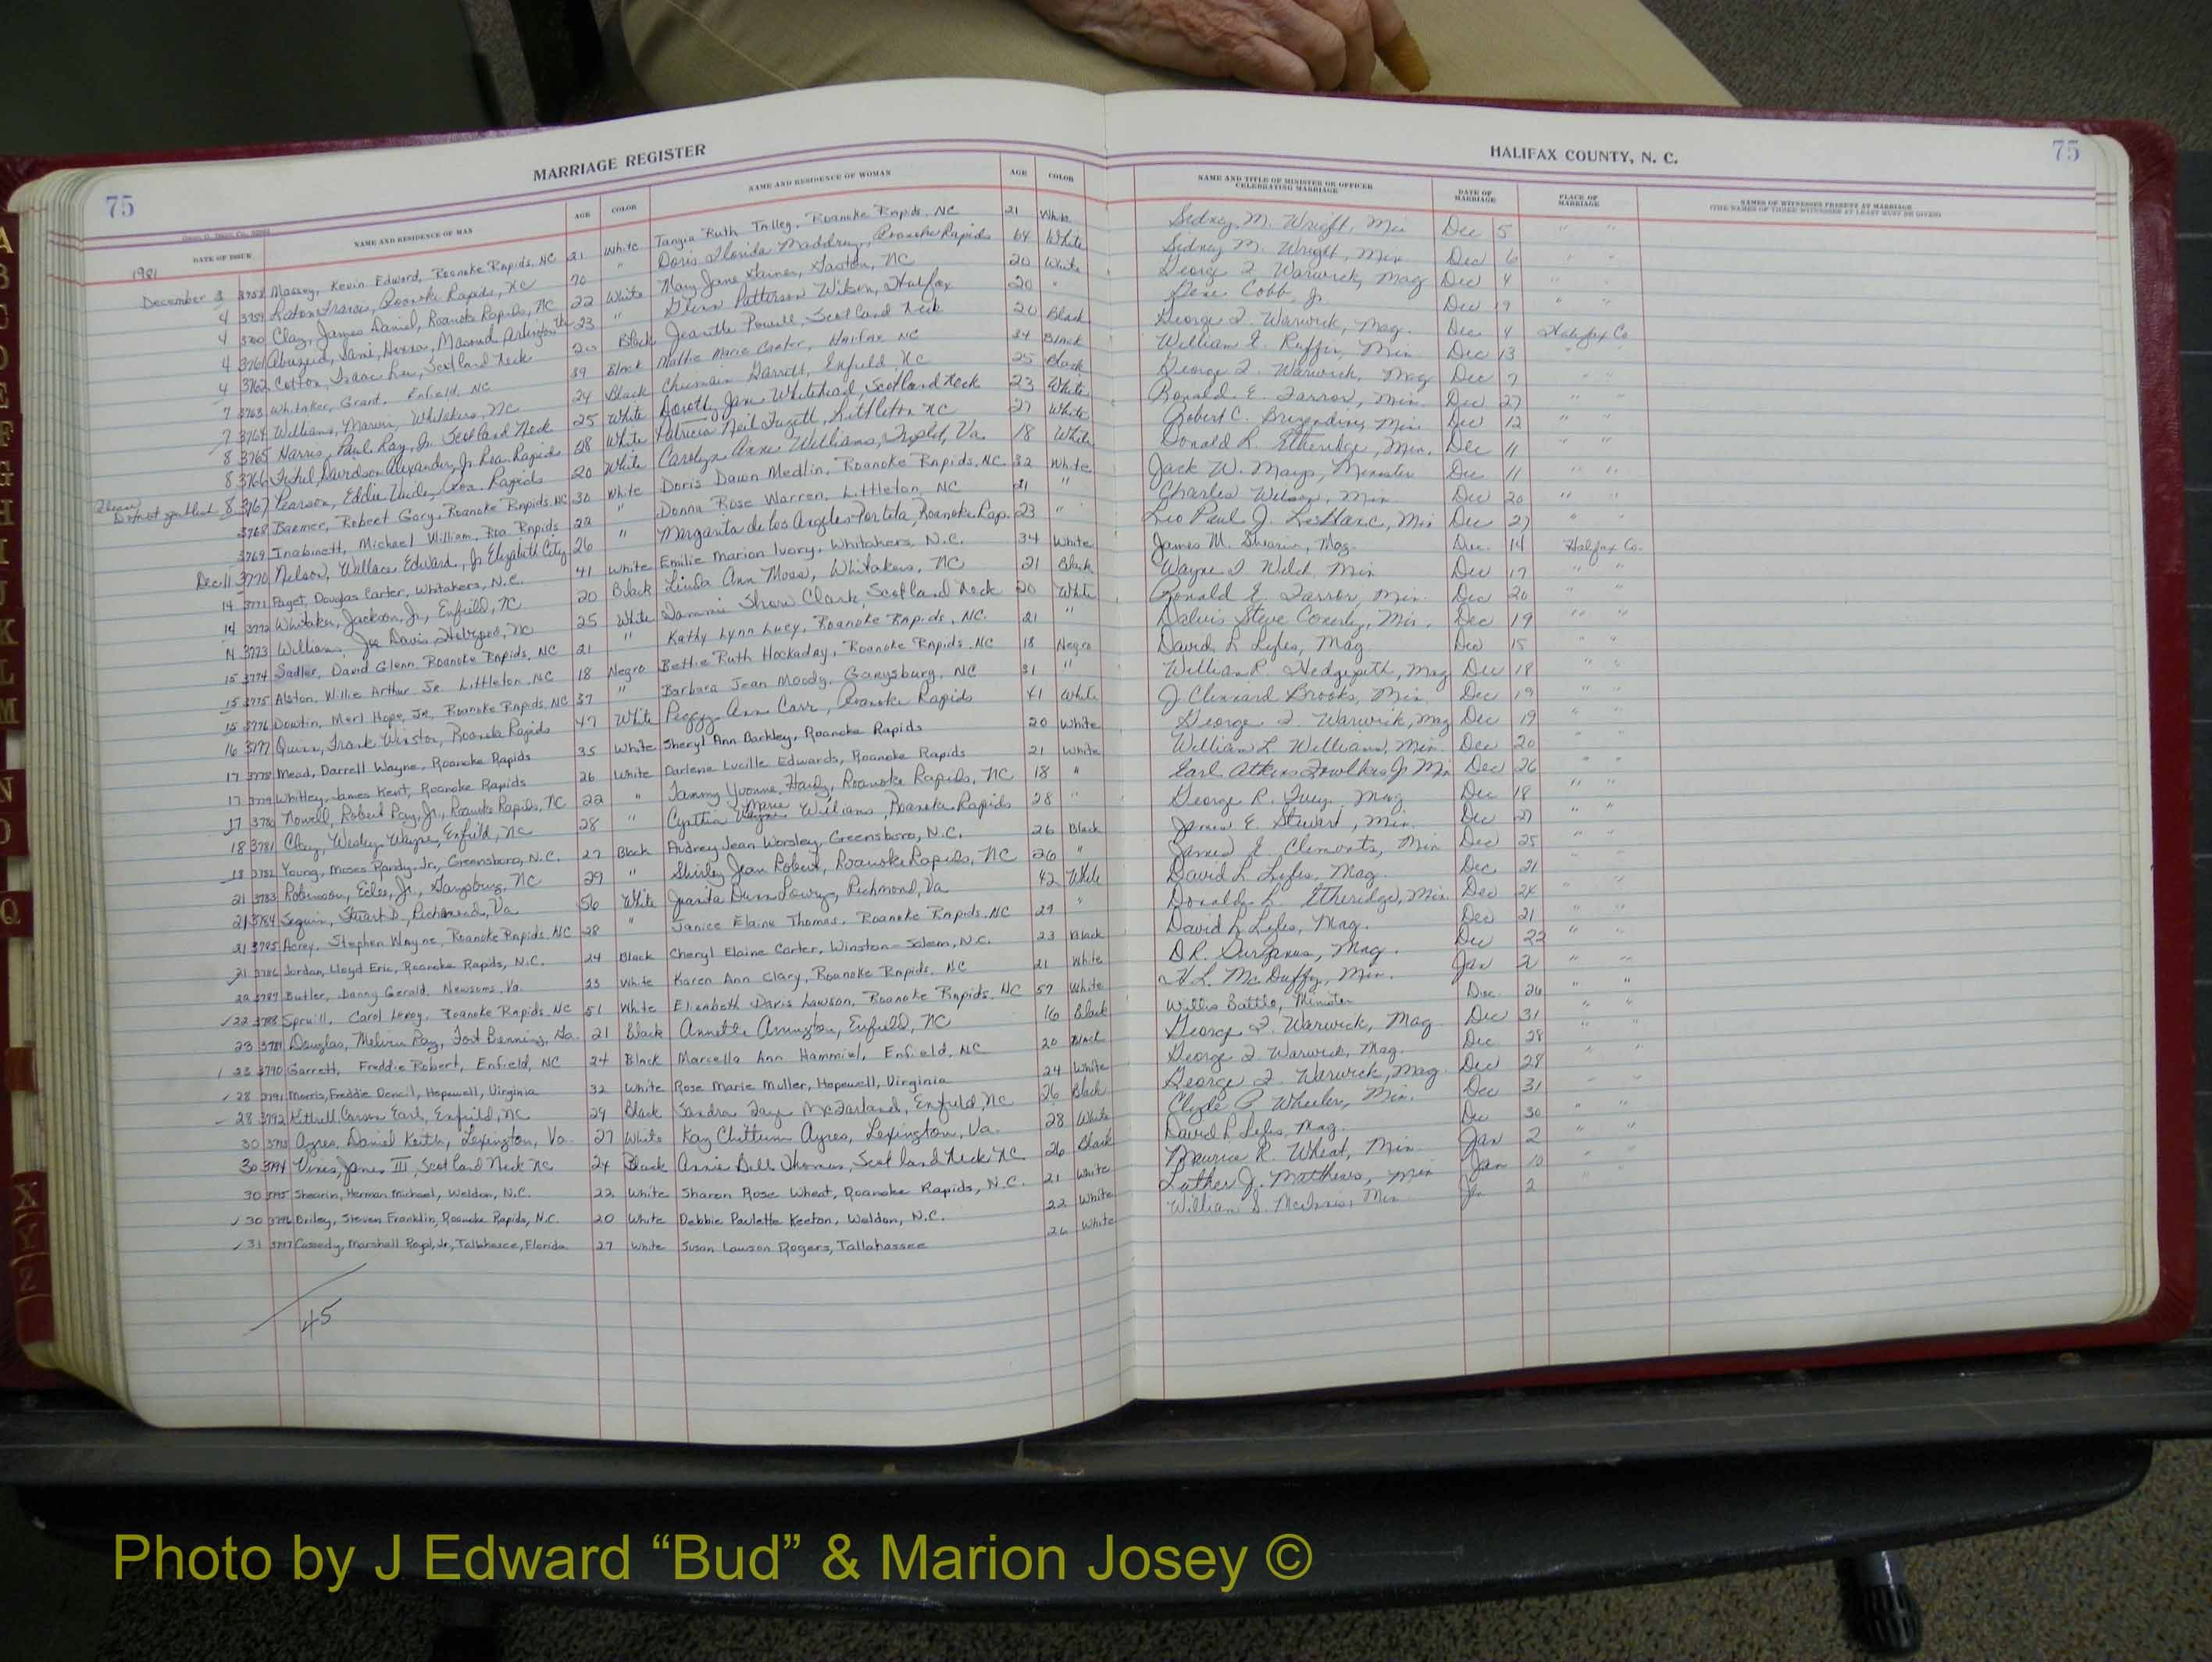 MARRIAGE REGISTER
HALIFAX COUNTY, N. C.
75
75
DATE OF ISSUE
NAME AND RESIDENCE OF MAN
AGE
COLOR
NAME AND RESIDENCE OF WOMAN
AGE
COLOR
NAME AND TITLE OF MINISTER OR OFFICER CELEBRATING MARRIAGE
DATE OF MARRIAGE
PLACE OF MARRIAGE
NAMES OF WITNESSES PRESENT AT MARRIAGE
(THE NAMES OF THREE WITNESSES AT LEAST MUST BE GIVEN)
1981
December 3 3758 Massey, Kevin Edward, Roanoke Rapids, NC 21 White Tanya Ruth Talley, Roanoke Rapids, NC 21 White Sidney M. Wright, Min Dec 5 " "
4 3759 Roanoke Rapids, NC 70 " Doris Florida Maddrey, Roanoke Rapids 64 White Sidney M. Wright, Min Dec 6 " "
4 3760 Clay, James Daniel, Roanoke Rapids, NC 22 White Mary Jane Gaston, NC 20 White George Warwick, Mag Dec 4 " "
4 3761 23 " Patterson Halifax 20 " Gene Cobb, Jr Dec 19 " "
4 3762 Cotton, Isaac Lee, Scotland Neck 20 Black Jeanette Powell, Scotland Neck 20 Black George Warwick, Mag. Dec 4 Halifax Co
7 3763 Whitaker, Grant, Enfield, NC 39 Black Mattie Marie Carter, Halifax NC 34 Black William E. Ruffin, Min Dec 13
7 3764 Williams, Whitakers, NC 24 Black Garrett, Enfield NC 25 Black George Warwick, Mag Dec 7 " "
8 3765 Harris, Paul Ray, Jr. Scotland Neck 25 White Dorothy Jane Whitehead, Scotland Neck 23 White Ronald E. Min. Dec 27 " "
8 3766 Davidson Alexander, Jr. Roa. Rapids 28 White Patricia Neil Littleton NC 27 White Robert C. Min Dec 12 " "
8 3767 Pearson, Eddie Roa. Rapids 20 White Carolyn Anne Williams, Va. 18 White Donald R. Etheridge, Min. Dec 11 " "
3768 Barmer, Robert Gary, Roanoke Rapids, NC 30 White Doris Dawn Medlin, Roanoke Rapids, NC. 32 White Jack W. Mayo, Minister Dec 11 " "
3769 Inabinett, Michael William, Roa Rapids 22 " Donna Rose Warren, Littleton, NC 21 " Charles Wilson, Min Dec 20 " "
Dec 11 3770 Nelson, Wallace Edward, Jr Elizabeth City 26 " Margarita de los Angeles Portela, Roanoke Rap. 23 " Leo Paul J. LesBlanc, Min Dec 27 " "
14 3771 Paget, Douglas Carter, Whitakers, N.C. 41 White Emilie Marion Ivory, Whitakers, N.C. 34 White James M. Shearin, Mag. Dec. 14 Halifax Co.
14 3772 Whitaker, Jackson, Jr, Enfield, NC 20 Black Linda Ann Moss, Whitakers, NC 21 Black Wayne Welch, Min Dec 17 " "
14 3773 Williams, Joe Davis, NC 25 White Tammie Clark, Scotland Neck 20 White Ronald E. Min. Dec 20 " "
15 3774 Sadler, David Glenn Roanoke Rapids, NC 21 " Kathy Lynn Lucy, Roanoke Rapids, NC. 21 " Steve Min. Dec 19 " "
15 3775 Alston, Willie Arthur Jr. Littleton, NC 18 Negro Bettie Ruth Hockaday, Roanoke Rapids, NC 18 Negro David L Lyles, Mag Dec 15 " "
15 3776 Dowtin, Merl Hope, Jr., Roanoke Rapids, NC 37 " Barbara Jean Moody, Garysburg, NC 31 " William R. Hedgepeth, Mag Dec 18 " "
16 3777 Quinn, Frank Winston, Roanoke Rapids 47 White Peggy Ann Carr, Roanoke Rapids 41 White J. Clennard Brooks, Min. Dec 19 " "
17 3778 Mead, Darrell Wayne, Roanoke Rapids 35 White Sheryl Ann Barkley, Roanoke Rapids 20 White George Warwick, Mag Dec 19 " "
17 3779 Whitley, James Kent, Roanoke Rapids 26 White Darlene Lucille Edwards, Roanoke Rapids 21 White William L. Williams, Min Dec 20 " "
17 3780 Nowell, Robert Ray, Jr., Roanoke Rapids, NC 22 " Tammy Yvonne Roanoke Rapids, NC 18 " Earl Atkins Jr Min Dec 26 " "
18 3781 Clay, Wesley Wayne, Enfield, NC 28 " Cynthia Marie Williams, Roanoke Rapids 28 " George R. Mag Dec 18 " "
18 3782 Young, Moses Randy, Jr, Greensboro, N.C. 27 Black Audrey Jean Worsley, Greensboro, N.C. 26 Black James E. Stewart, Min. Dec 27 " "
21 3783 Robinson, Jr., Garysburg, NC 29 " Shirley Jean Robert, Roanoke Rapids, NC 26 " James E. Clements, Min Dec 25 " "
21 3784 Seguin, Stuart D., Richmond, Va 56 White Juanita Dunn Lowry, Richmond, Va 42 White David L Lyles, Mag. Dec 21 " "
21 3785 Acrey, Stephen Wayne, Roanoke Rapids, NC 28 " Janice Elaine Thomas, Roanoke Rapids, NC 29 " Donald L. Etheridge, Min Dec 24 " "
21 3786 Jordan, Lloyd Eric, Roanoke Rapids, N.C. 24 Black Cheryl Elaine Carter, Winston-Salem, N.C. 23 Black David L Lyles, Mag. Dec 21 " "
22 3787 Butler, Danny Gerald, Newsoms, Va. 23 White Karen Ann Clary, Roanoke Rapids, NC 21 White D.R. Mag. Dec 22 " "
22 3788 Spruill, Carol Leroy, Roanoke Rapids, NC 51 White Elizabeth Davis Lawson, Roanoke Rapids, NC 57 White H.L. McDuffy, Min. Jan 2 " "
23 3789 Douglas, Melvin Ray, Fort Benning, Ga. 21 Black Annette Arrington, Enfield, NC 16 Black Willis Battle, Minister Dec. 26 " "
23 3790 Garrett, Freddie Robert, Enfield, NC 24 Black Marcella Ann Hammiel, Enfield, NC 20 Black George Warwick, Mag Dec 31 " "
28 3791 Morris, Freddie Dencil, Hopewell, Virginia 32 White Rose Marie Muller, Hopewell, Virginia 24 White George Warwick, Mag. Dec 28 " "
28 3792 Kittrell, Carson Earl, Enfield, NC 29 Black Sandra Faye McFarland, Enfield, NC 26 Black George Warwick, Mag. Dec 28 " "
30 3793 Ayres, Daniel Keith, Lexington, Va. 27 White Kay Chittum Ayres, Lexington, Va. 28 White Clyde P Wheeler, Min. Dec 31 " "
30 3794 Vines, James III, Scotland Neck NC 24 Black Annie Bell Thomas, Scotland Neck NC 26 Black David L Lyles, Mag. Dec 30 " "
30 3795 Shearin, Herman Michael, Weldon, N.C. 22 White Sharon Rose Wheat, Roanoke Rapids, N.C. 21 White Maurice R. Wheat, Min Jan 2 " "
30 3796 Briley, Steven Franklin, Roanoke Rapids, N.C. 20 White Debbie Paulette Keeton, Weldon, N.C. 22 White Luther J. Matthews, Min Jan 10 " "
31 3797 Cassedy, Marshall Royal, Jr, Tallahassee, Florida 27 White Susan Lawson Rogers, Tallahassee 26 White William S. McInnis, Min Jan 2
45
Photo by J Edward “Bud” & Marion Josey ©